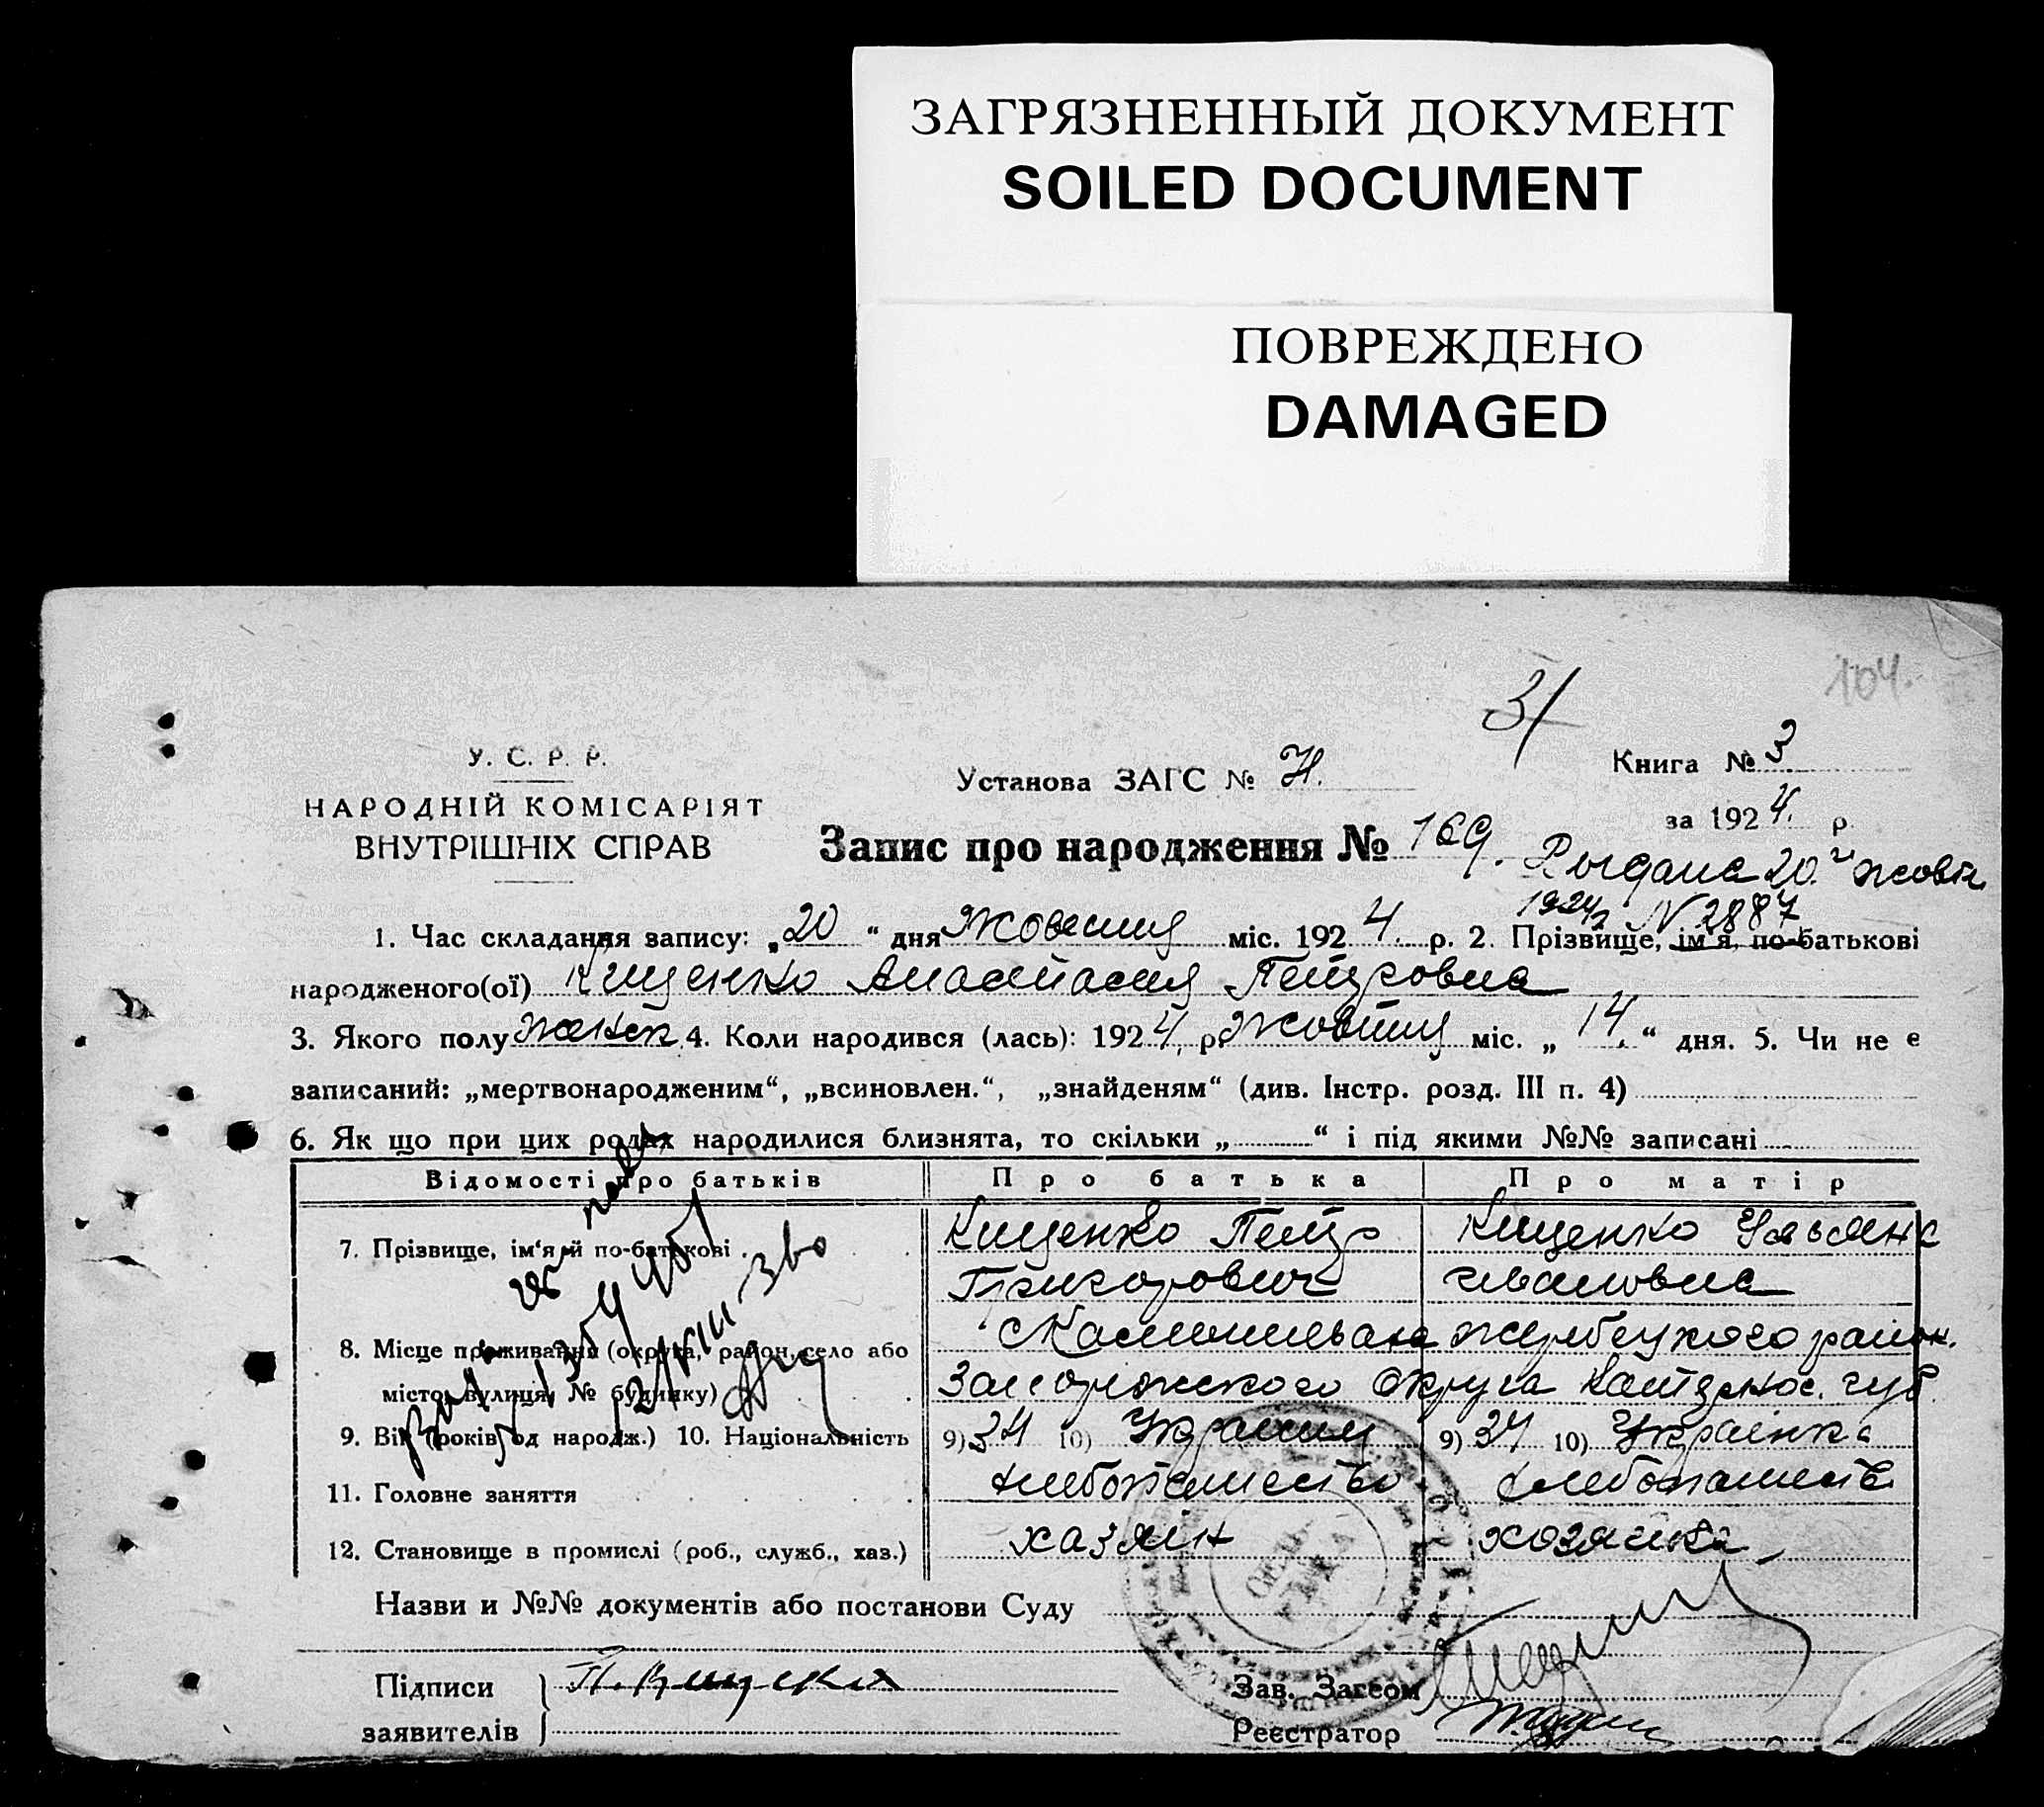 ЗАГРЯЗНЕННЫЙ ДОКУМЕНТ
SOILED DOCUMENT
ПОВРЕЖДЕНО
DAMAGED
104.
3/
У. С. Р. Р.
НАРОДНІЙ КОМІСАРІЯТ
ВНУТРІШНІХ СПРАВ
Установа ЗАГС №
Книга № 3
за 1924. р.
Запис про народження № 169.
20 жовт.
1924 № 2887
1. Час складання запису: „20“ дня Жовтня міс. 1924. р. 2. Прізвище, ім'я, по-батькові
народженого(ої) Кищенко Анастасия Петровна
3. Якого полу женск. 4. Коли народився (лась): 1924. р. Жовтня міс. „14.“ дня. 5. Чи не є
записаний: „мертвонародженим“, „всиновлен.“, „знайденям“ (див. Інстр. розд. III п. 4)
6. Як що при цих родах народилися близнята, то скільки „ “ і під якими №№ записані
Відомості про батьків Про батька Про матір
7. Прізвище, ім'я й по-батькові Кищенко Петр Кищенко Ульяна
Григорович Ивановна
8. Місце проживання (округа, район, село або жеребецкого район.
місто, вулиця, № будинку) Запоріжского Округа Катерінос. губ
9. Вік (років од народж.) 10. Національність 9) 34 10) Украинц 9) 34 10) Українка
11. Головне заняття хлебопашество хлебопашеств
12. Становище в промислі (роб., служб., хаз.) хазяін хозяйка
Назви и №№ документів або постанови Суду
Підписи
заявителів
Зав. Загсом
Реєстратор